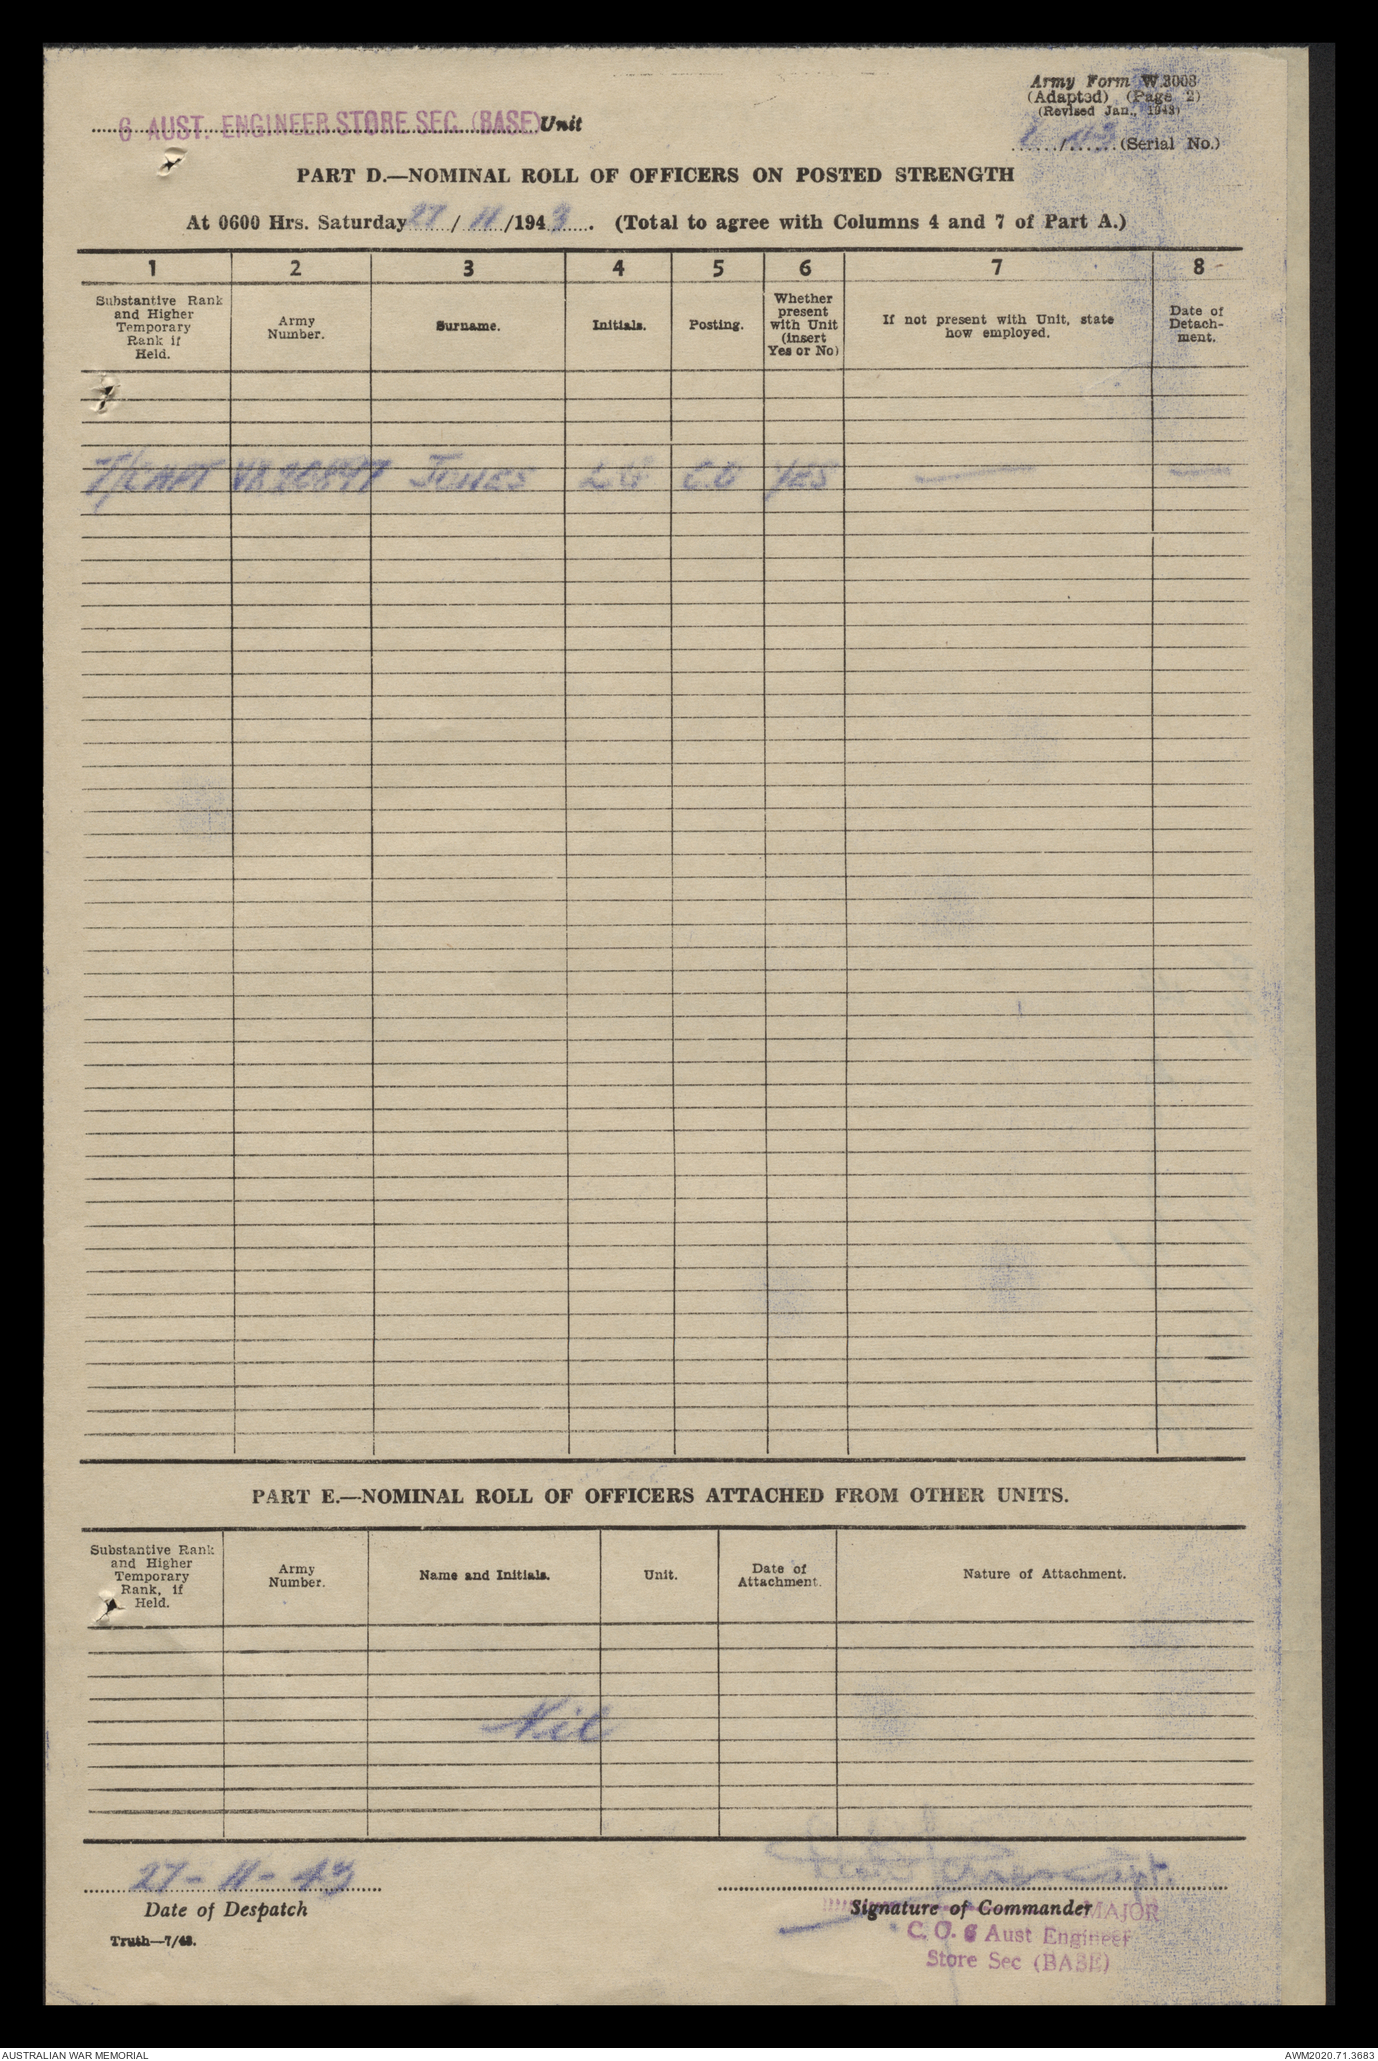 Army Form W.3008
(Adapted) (Page 2)
(Revised Jan., 1943)
6 AUST. ENGINEER STORE SEC. (BASE) Unit
(Serial No.)
PART D.—NOMINAL ROLL OF OFFICERS ON POSTED STRENGTH
At 0600 Hrs. Saturday 27 / 11 /1943. (Total to agree with Columns 4 and 7 of Part A.)
1 2 3 4 5 6 7 8
Substantive Rank and Higher Temporary Rank if Held.
Army Number.
Surname.
Initials.
Posting.
Whether present with Unit (insert Yes or No)
If not present with Unit, state how employed.
Date of Detach-ment.
T/CAPT JONES CO YES — —
PART E.—NOMINAL ROLL OF OFFICERS ATTACHED FROM OTHER UNITS.
Substantive Rank and Higher Temporary Rank, if Held.
Army Number.
Name and Initials.
Unit.
Date of Attachment.
Nature of Attachment.
Nil
27-11-43
Capt.
Date of Despatch
Signature of Commander MAJOR
C. O. 6 Aust Engineer
Store Sec (BASE)
Truth—7/43.
AUSTRALIAN WAR MEMORIAL
AWM2020.71.3683